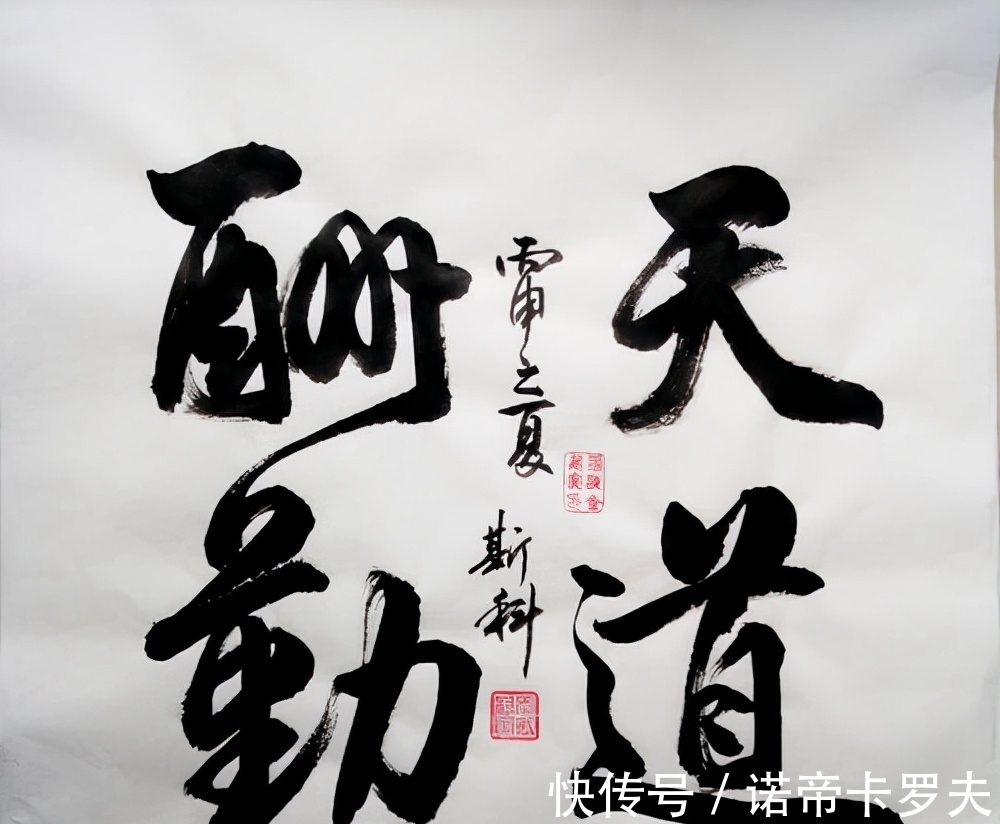 天道
酬勤
丙申之夏
斯科
快传号 / 诺帝卡罗夫